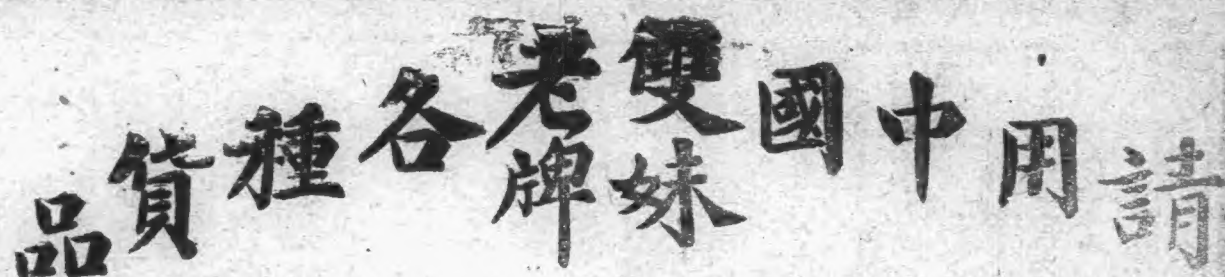 請用中國雙妹老牌各種貨品